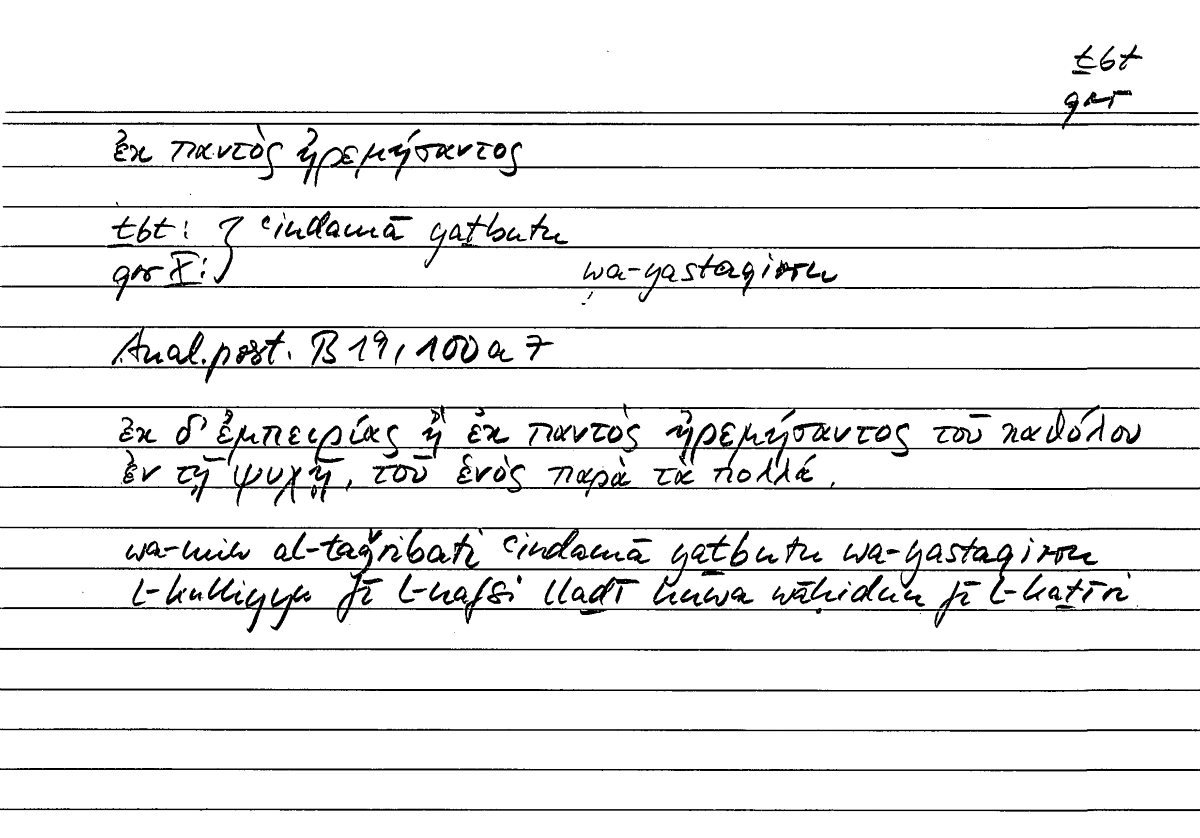 ṯbt
qrr
ἐκ παντὸς ἠρεμήσαντος
ṯbt: } ʿindamā yaṯbutu
qrr X: } wa-yastaqirru
Anal. post. B 19, 100 a 7
ἐκ δ' ἐμπειρίας ἢ ἐκ παντὸς ἠρεμήσαντος τοῦ καθόλου
ἐν τῇ ψυχῇ, τοῦ ἑνὸς παρὰ τὰ πολλά,
wa-min al-taǧribati ʿindamā yaṯbutu wa-yastaqirru
l-kulliyyu fī l-nafsi llaḏī huwa wāḥidun fī l-kaṯīri